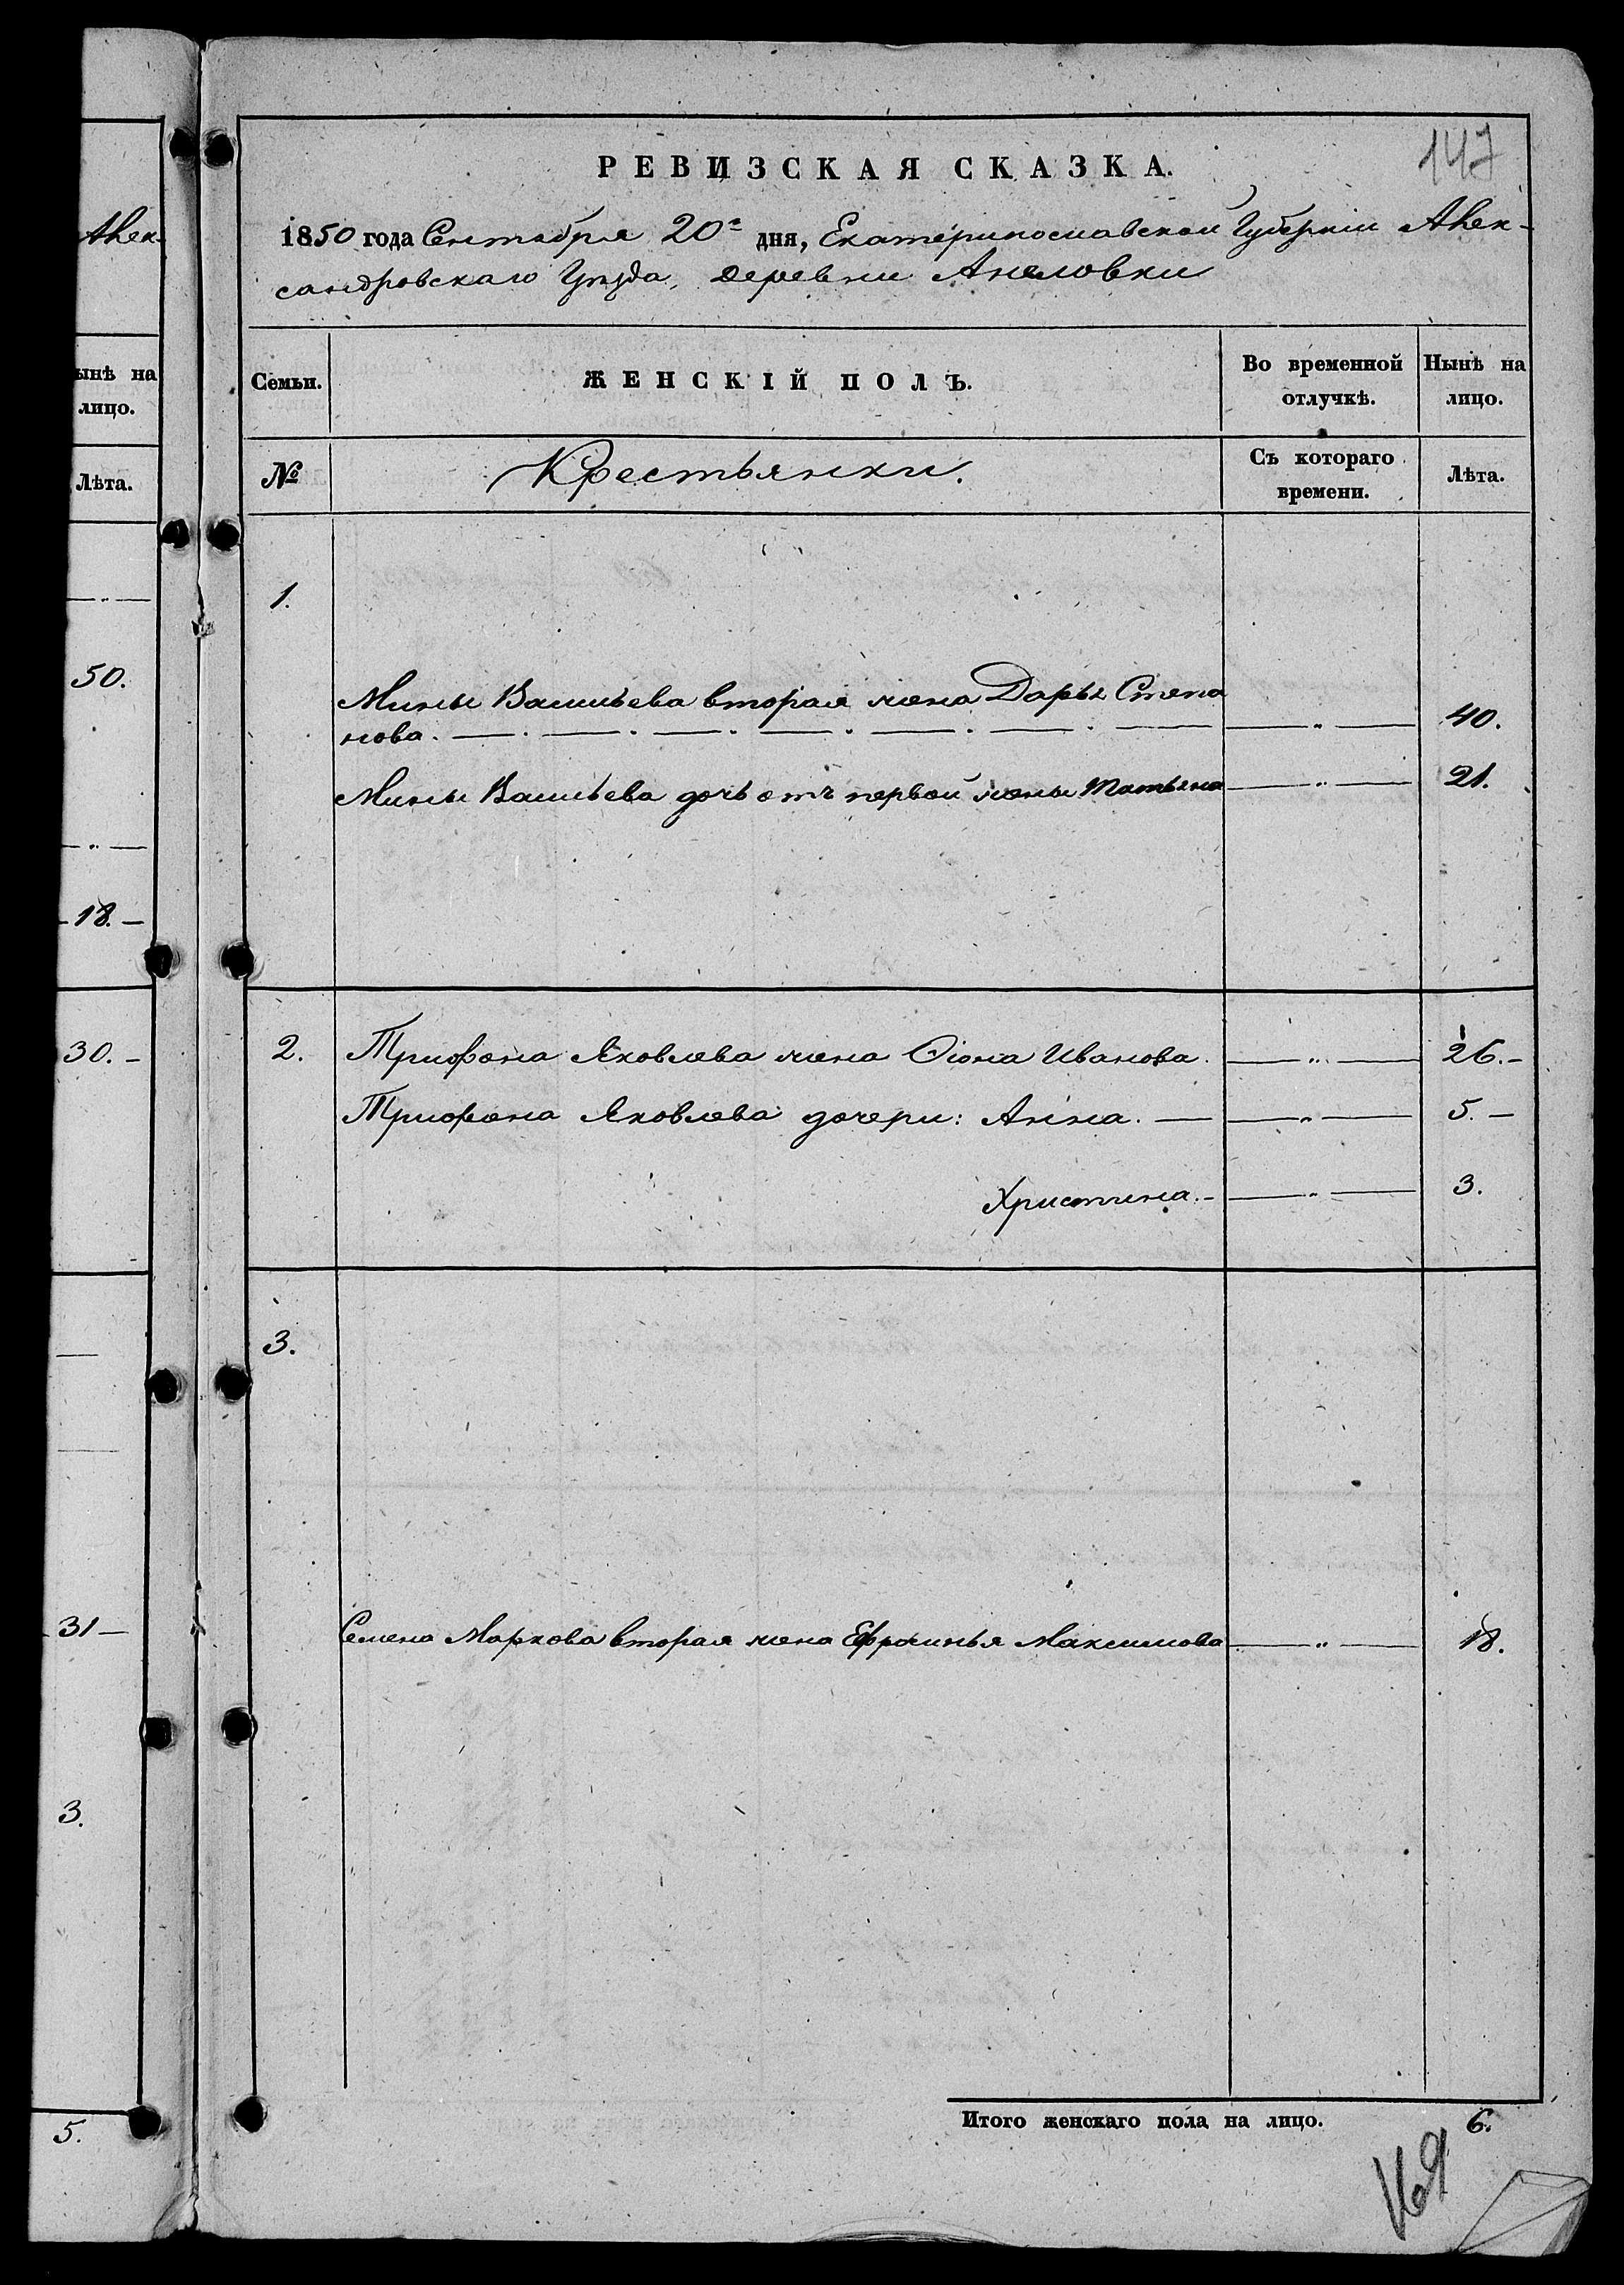 Алек-
ынѣ на
лицо.
Лѣта.
50.
18.
30.
31
3.
5.
147
РЕВИЗСКАЯ СКАЗКА.
1850 года Сентября 20го дня, Екатеринославской Губерніи Алек-
сандровскаго Уѣзда, деревни Анеловки
Семьи. ЖЕНСКІЙ ПОЛЪ. Во временной отлучкѣ. Нынѣ на лицо.
№ Крестьянки. Съ котораго времени. Лѣта.
1.
Мины Васильева вторая жена Дарья Степа
нова. 40.
Мины Васильева дочь отъ первой жены Татьяна 21.
2. Трифона Яковлева жена Ѳіона Иванова. 26.
Трифона Яковлева дочери: Анна. 5.
Христина. 3.
3.
Семена Маркова вторая жена Ефросинья Максимова 18.
Итого женскаго пола на лицо. 6.
169